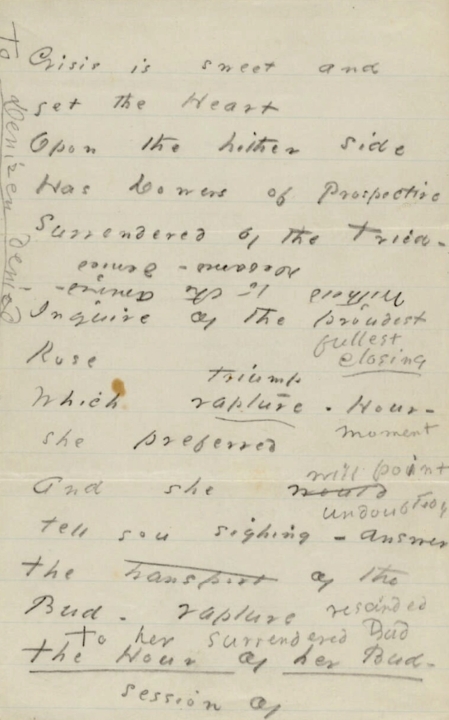 To Denizen denied
Crisis is sweet and
yet the Heart
Upon the hither side
Has Dowers of Prospective
Surrendered by the Tried -
Withheld to the
Inquire of the proudest
fullest
closing
Rose
triump
Which rapture - Hour -
moment
she preferred
will point
And she would
undoubtedly
tell you sighing - answer
the transport of the
Bud - rapture rescinded
To her surrendered Bud
the Hour of her Bud -
session of